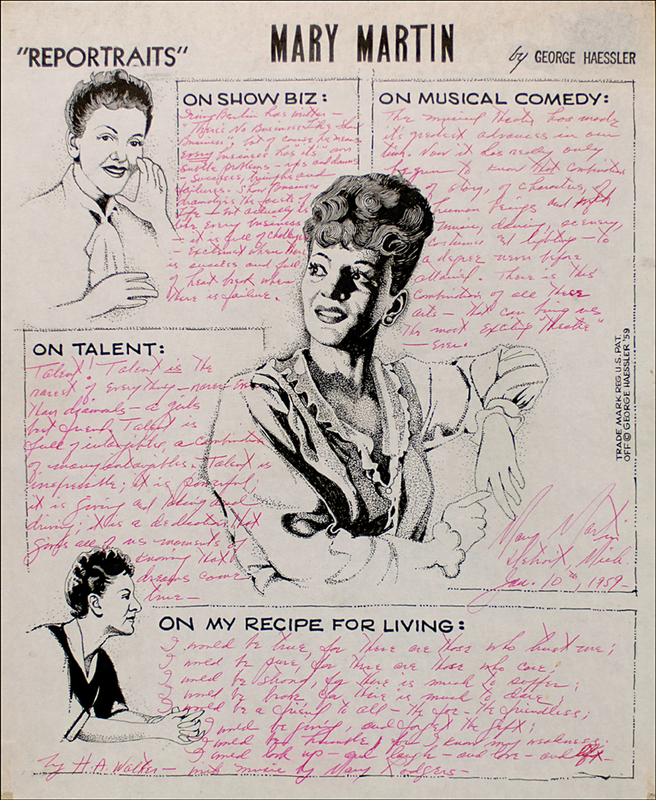 "REPORTRAITS"
MARY MARTIN
by GEORGE HAESSLER
ON SHOW BIZ:
Irving Berlin has written –
"There's No Business Like Show
Business", but of course he knows
every business has its own
subtle problems – ups and downs
– successes, triumphs and
failures. Show Business
dramatizes the facets of
life – but actually is
like every business
– it is full of challenge
– excitement when there
is success and full
of heart break when
there is failure.
ON MUSICAL COMEDY:
The musical theatre has made
its greatest advances in our
time. Now it has really only
begun to know that combination
of story, of character, of
human beings and with
music, dancing, scenery,
costumes and lighting – to
a degree never before
attained. There is this
combination of all three
arts – that can bring us
"the most exciting theatre"
– ever.
ON TALENT:
Talent! Talent is the
rarest of everything – rarer even
than diamonds – a girl's
best friend. Talent is
full of integrity, a combination
of many intangibles. Talent is
irrepressible; it is powerful;
it is giving and taking and
driving; it is a dedication that
gives all of us moments of
knowing that
dreams come
true –
TRADE MARK REG U.S. PAT.
OFF © GEORGE HAESSLER '59
Mary Martin
Detroit, Mich.
Jan. 10th, 1959
ON MY RECIPE FOR LIVING:
I would be true, for there are those who trust me;
I would be pure, for there are those who care;
I would be strong, for there is much to suffer;
I would be brave for there is much to dare;
I would be a friend to all – the foe – the friendless;
I would be giving, and forget the gift;
I would be humble, for I know my weakness;
I would look up – and laugh – and love – and lift –
by H. A. Walter – with music by Mary Rodgers –